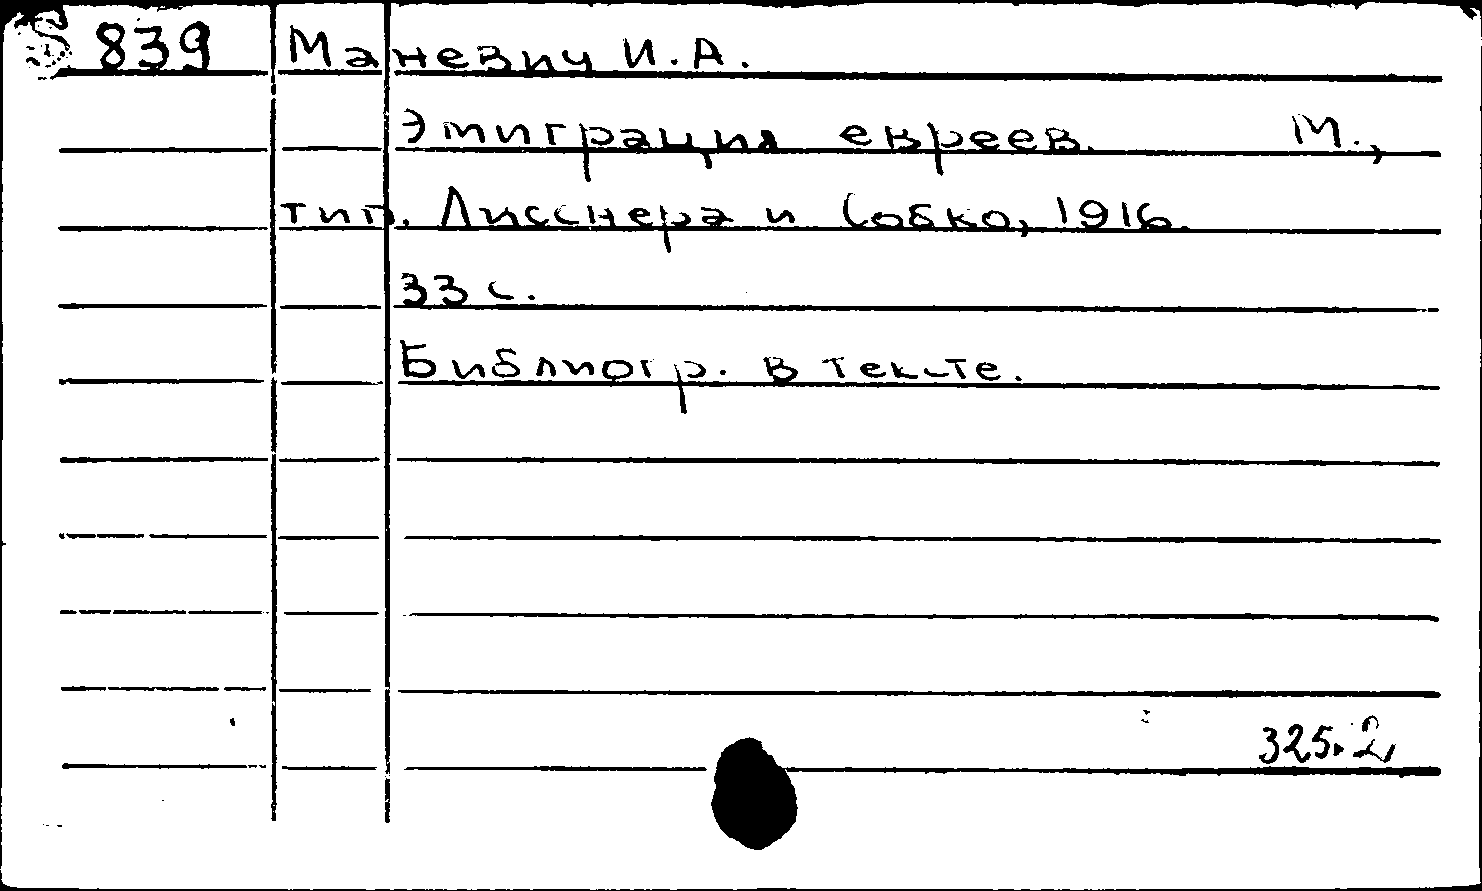 S 839 Маневич И.А.
Эмиграция евреев. М.,
тип. Лисснера и Собко, 1916.
33 с.
Библиогр. в тексте.
325.2